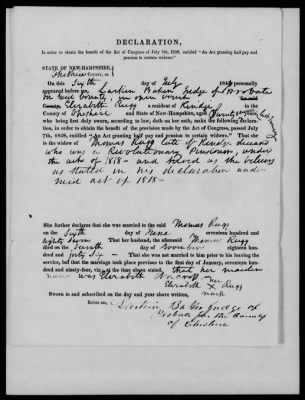 DECLARATION,
In order to obtain the benefit of the Act of Congress of July 7th, 1838, entitled "An Act granting half pay
and pension to certain widows."
STATE OF NEW-HAMPSHIRE, }
Cheshire County, ss. }
On this Sixth day of July 184 personally
appeared before me, Larkin Baker Judge of Probate
for said County, in open court
Elizabeth Rugg a resident of Rindge in the
County of Cheshire and State of New-Hampshire, aged years,
who being first duly sworn, according to law, doth on her oath, make the following declara-
tion, in order to obtain the benefit of the provision made by the Act of Congress, passed July
7th, 1838, entitled "An Act granting half pay and pension to certain widows." That she
is the widow of Thomas Rugg late of Rindge, deceased
who was a Revolutionary Pensioner, under
the act of 1818 - and served as she believes
as stated in his declaration under
said act of 1818 -
She further declares that she was married to the said Thomas Rugg
on the Sixth day of June seventeen hundred and
eighty seven That her husband, the aforesaid Thomas Rugg
died on the Seventh day of November eighteen hun-
dred and forty Six - That she was not married to him prior to his leaving the
service, but the marriage took place previous to the first day of January, seventeen hun-
dred and ninety-four, viz: at the time above stated, that her maiden
name was Elizabeth
her
Elizabeth X Rugg
mark
Sworn to and subscribed on the day and year above written,
Before me, Larkin Baker Judge of
Probate for the County
of Cheshire